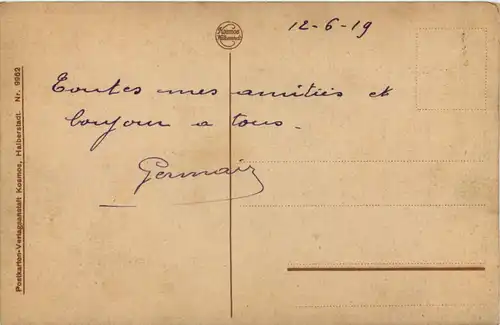 12-6-19
Toutes mes amitiés et
bonjour a tous.
Germain
Postkarten-Verlagsanstalt Kosmos, Halberstadt. Nr. 9962
Kosmos